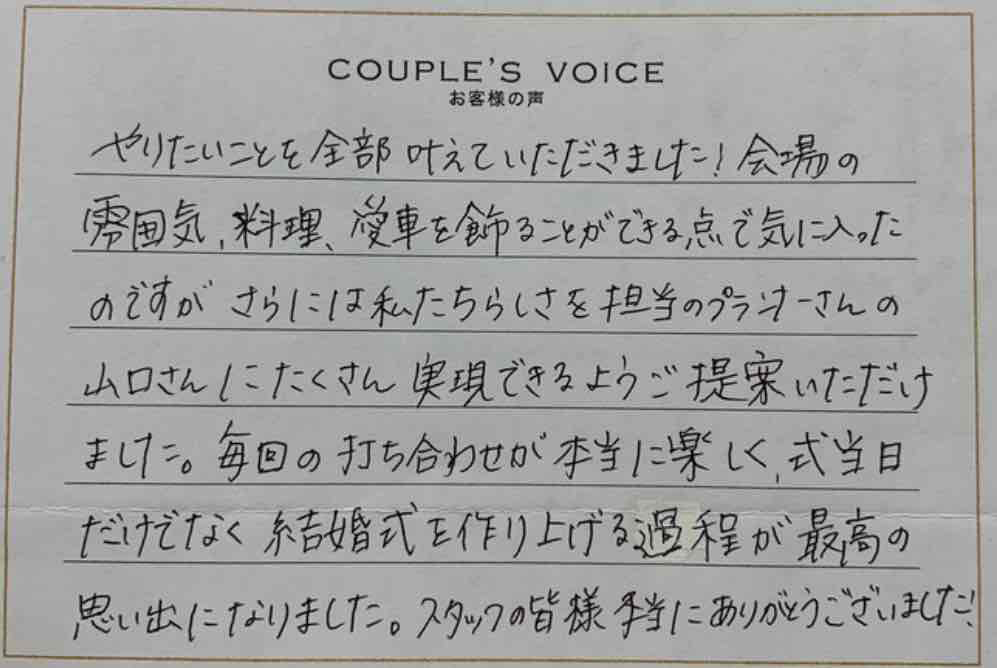 COUPLE'S VOICE
お客様の声
やりたいことを全部叶えていただきました!会場の
雰囲気、料理、愛車を飾ることができる点で気に入った
のですが さらには私たちらしさを担当のプランナーさんの
山口さんにたくさん実現できるようご提案いただけ
ました。毎回の打ち合わせが本当に楽しく、式当日
だけでなく結婚式を作り上げる過程が最高の
思い出になりました。スタッフの皆様本当にありがとうございました!